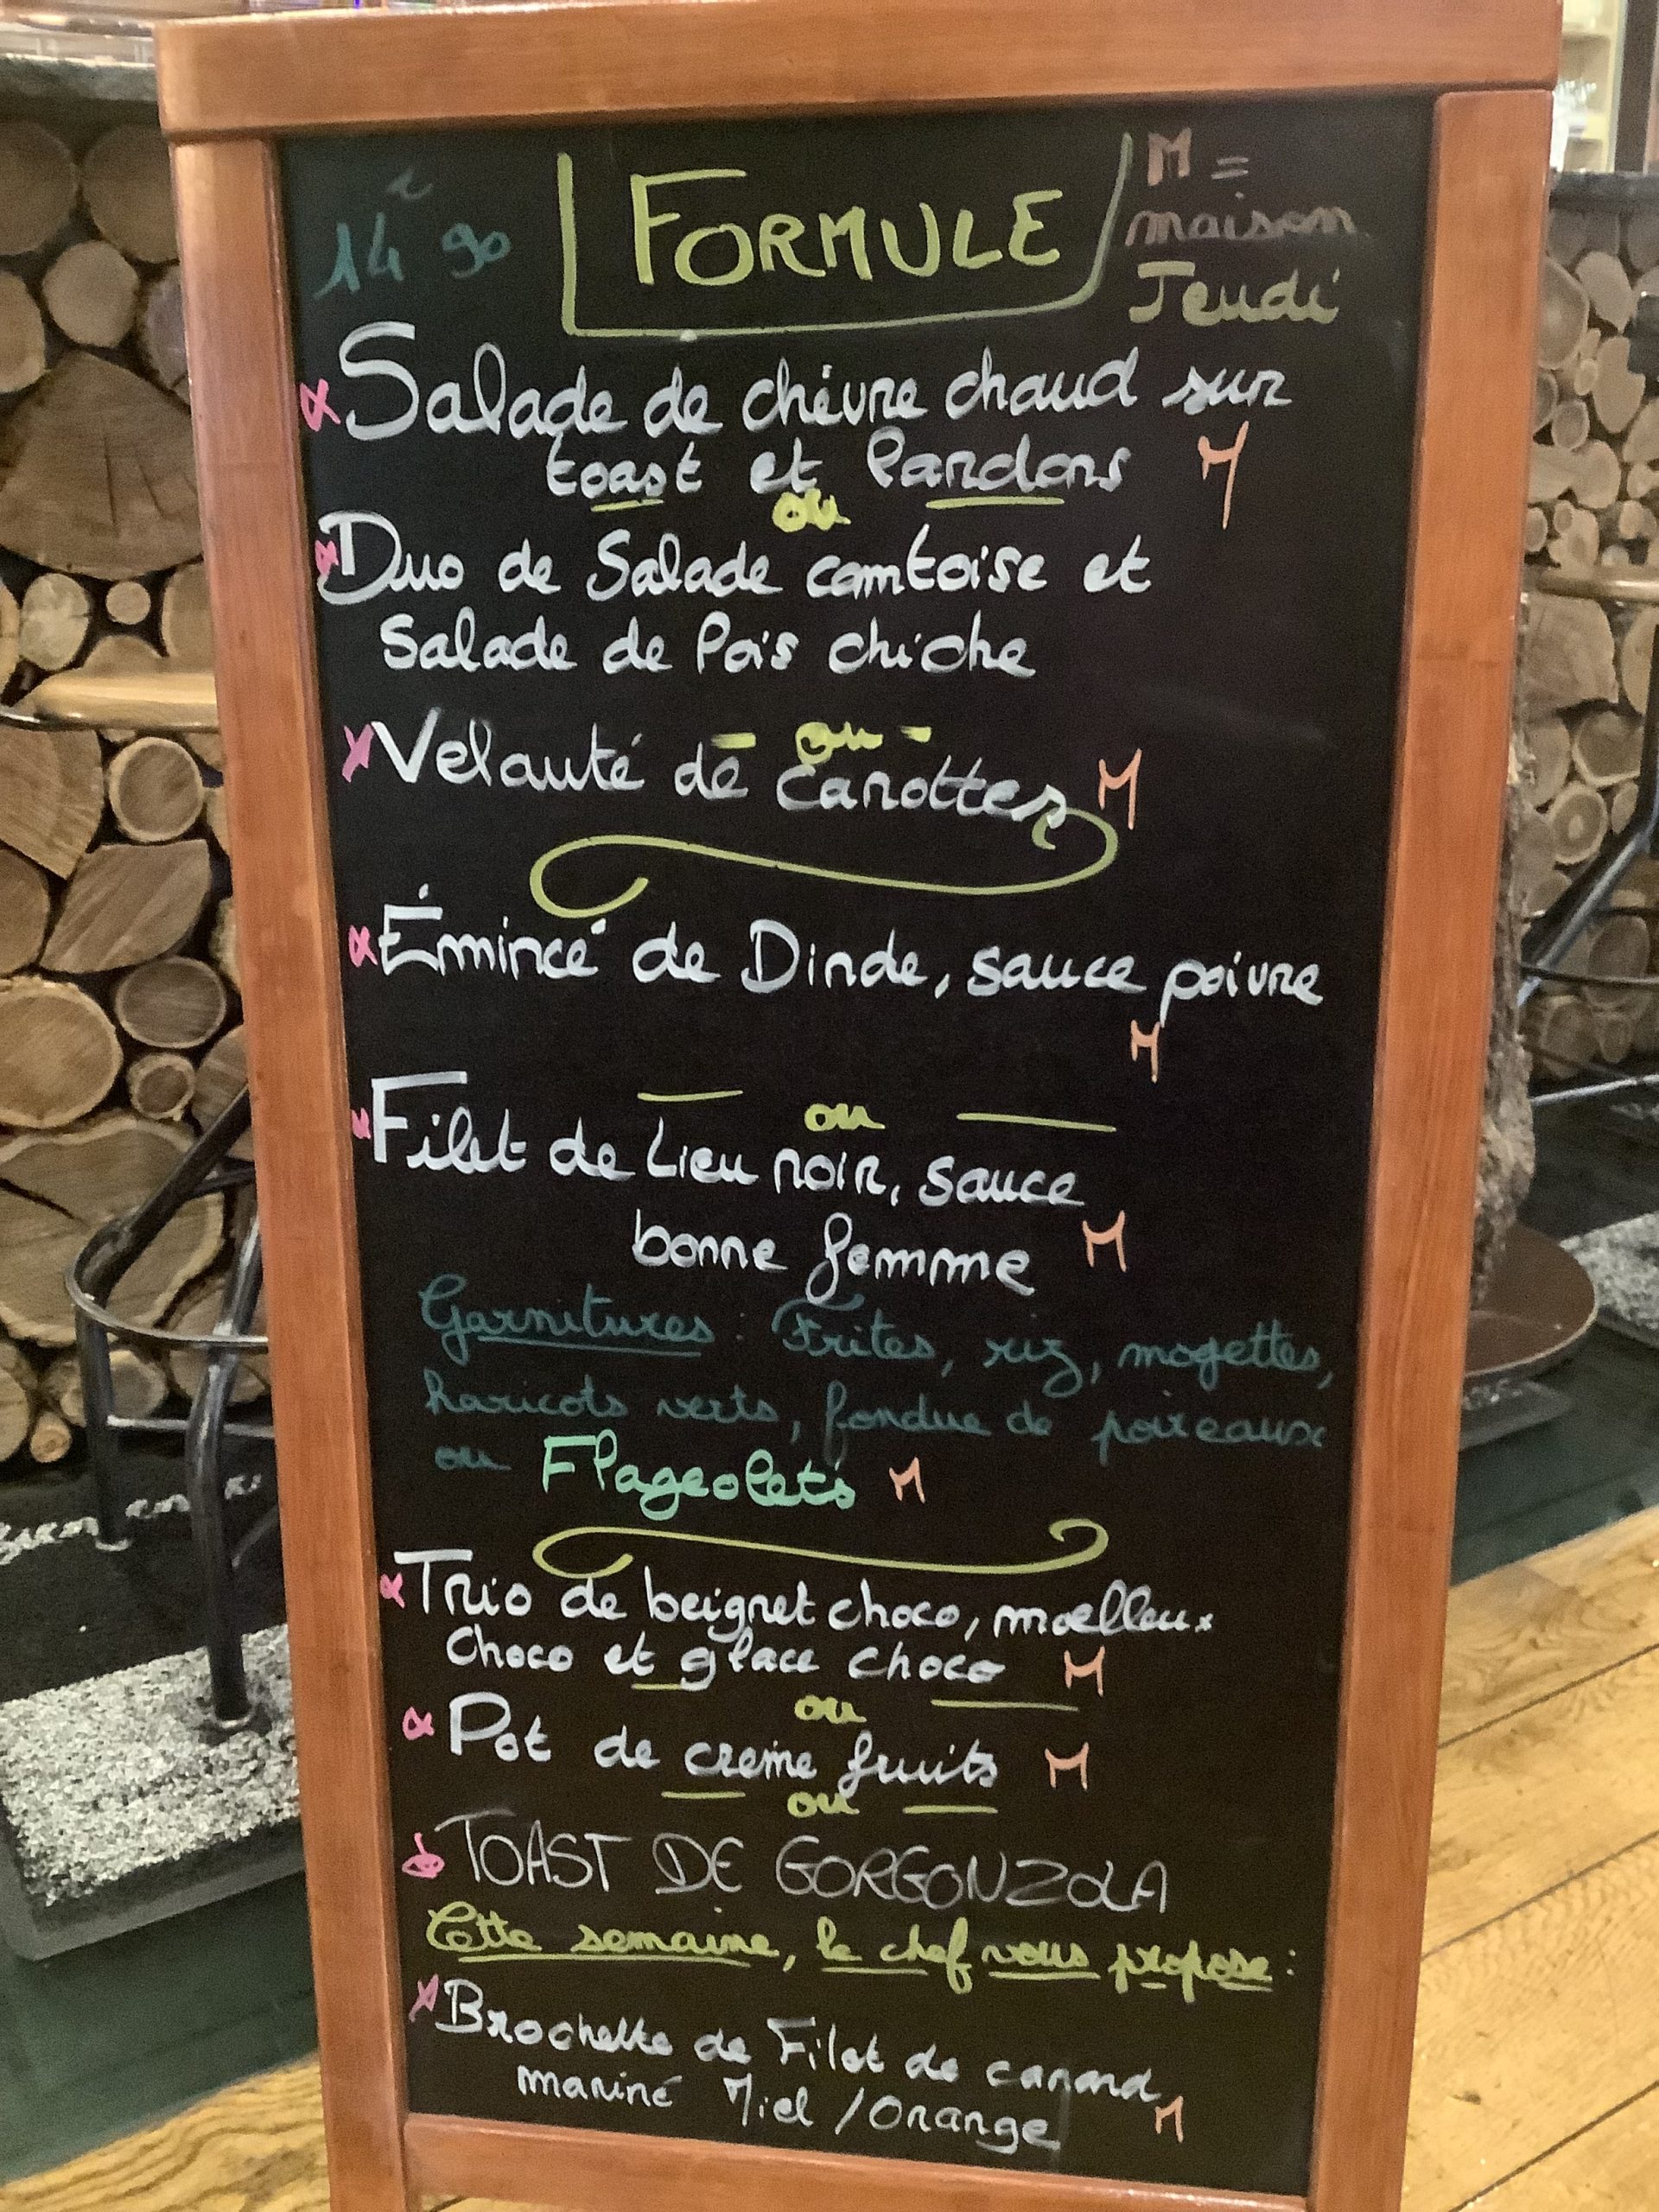 14€90
FORMULE
M =
maison
Jeudi
Salade de chèvre chaud sur
toast et lardons M
ou
Duo de Salade comtoise et
Salade de Pois chiche
- ou -
Velouté de carottes M
Émincé de Dinde, sauce poivre
M
ou
Filet de Lieu noir, sauce
bonne femme M
Garnitures : Frites, riz, mogettes,
haricots verts, fondue de poireaux
ou Flageolets M
Trio de beignet choco, moelleux
choco et glace choco M
ou
Pot de creme fruits M
ou
TOAST DE GORGONZOLA
Cette semaine, le chef vous propose :
Brochette de Filet de canard
mariné Miel / Orange M